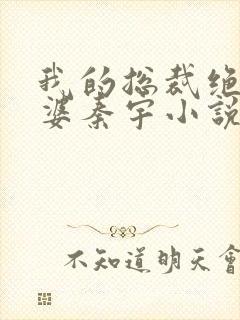 我的总裁绝
婆秦宇小說
不知道明天會